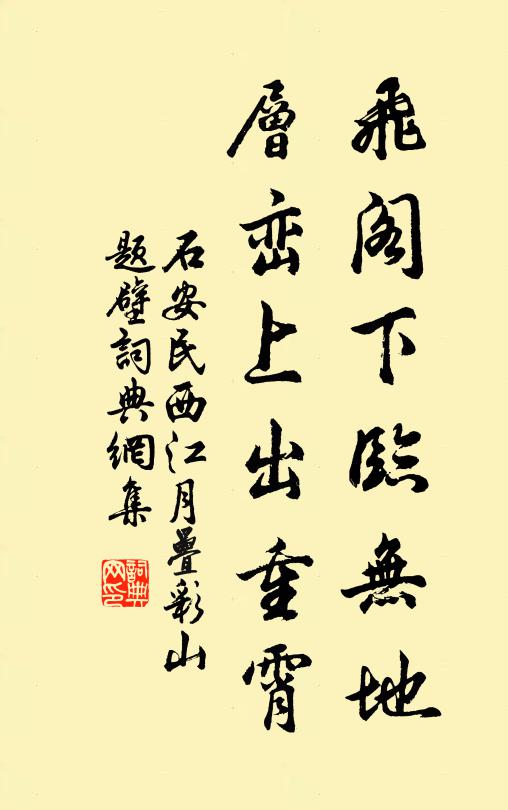 飛阁下臨無地
層峦上出重霄
石安民西江月疊彩山
題壁詞典網集
詞典網印